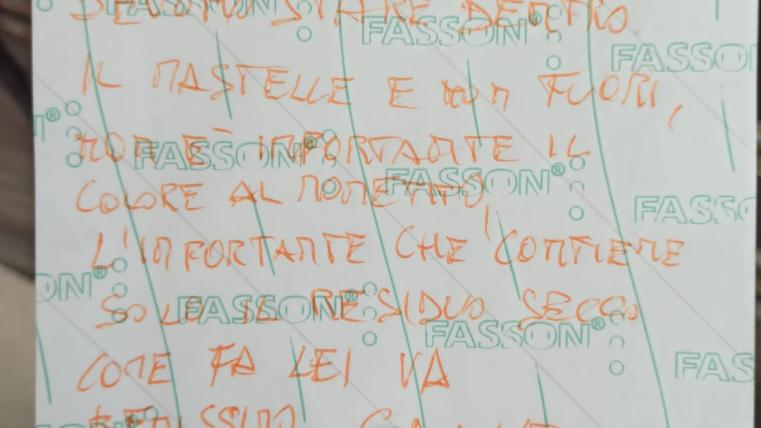 STARE DENTRO
IL MASTELLE E non FUORI,
NON È IMPORTANTE IL
COLORE AL MOMENTO
L'IMPORTANTE CHE CONTIENE
SOLO IL RESIDUO SECCO
COME FA LEI VA
BENISSIMO
FASSON®
FASSON
FASSON®
FASSON®
FASSON
FASSON®
FASSON®
FASSON